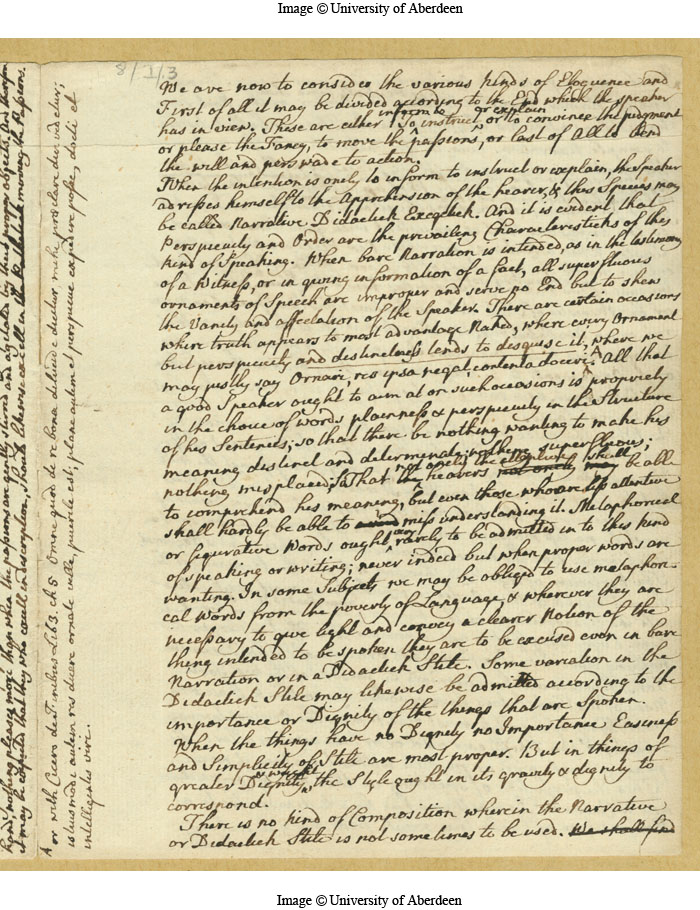 Image © University of Aberdeen
8/1/3
We are now to consider the various kinds of Eloquence and
First of all it may be divided according to the End which the speaker
inform to or explain
has in view. These are either To instruct or to convince the judgment
or please the Fancy, to move the passions, or last of All to bend
the will and perswade to action.
When the intention is onely to inform to instruct or explain, the Speaker
adresses himself to the Apprehension of the hearer, & this Species may
be called Narrative Didactick Exegetick. And it is evident that
Perspicuity and Order are the prevailing Characteristicks of this
kind of Speaking. When bare Narration is intended, as in the testimony
of a Witness, or in giving information of a fact, all superfluous
ornaments of Speech are improper and serve no End but to shew
the Vanity and affectation of the Speaker. There are certain occasions
where truth appears to most advantage Naked, where every Ornament
but perspicuity and distinctness tends to disguise it, where we
may justly say Ornari, res ipsa negat, contenta doceri ^ All that
a good Speaker ought to aim at on such occasions is propriety
in the choice of words plainness & perspicuity in the Structure
of his Sentences; so that there be nothing wanting to make his
meaning distinct and determinate; nothing superfluous;
nothing misplaced; So That the hearers not onely may be able
not onely the attentive shall
to comprehend his meaning, but even those who are less attentive
shall hardly be able to avoid miss understanding it. Metaphorical
or figurative Words ought rarely to be admitted in to this kind
of speaking or writing; never indeed but when proper words are
wanting. In some Subjects we may be obliged to use metaphori-
cal words from the poverty of Language, & wherever they are
necessary to give light and convey a clearer Notion of the
thing intended to be spoken they are to be excused even in bare
Narration or in a Didactick Stile. Some variation in the
Didactick Stile may likewise be admitted according to the
importance or Dignity of the things that are Spoken.
When the things have no Dignity no Importance Easiness
and Simplicity of Stile are most proper. But in things of
& weight
greater Dignity ^ the Style ought in its gravity & dignity to
correspond.
There is no kind of Composition wherein the Narrative
or Didactick Stile is not some times to be used. We shall find
hand nothing pleases more than when the passions are gently stirred and agitated by their proper objects. And therefore
it may be expected that they who excell in description, should likewise excell in the Art of moving the Passions.
^ or with Cicero de Finibus Lib 3. ch 5 Omne quod de re bona dilucide dicitur, mihi præclare dici videtur;
istius modi autem res dicere ornate velle, puerile est; plane autem et perspicue expedire posse, docti et
intelligentis viri.
Image © University of Aberdeen